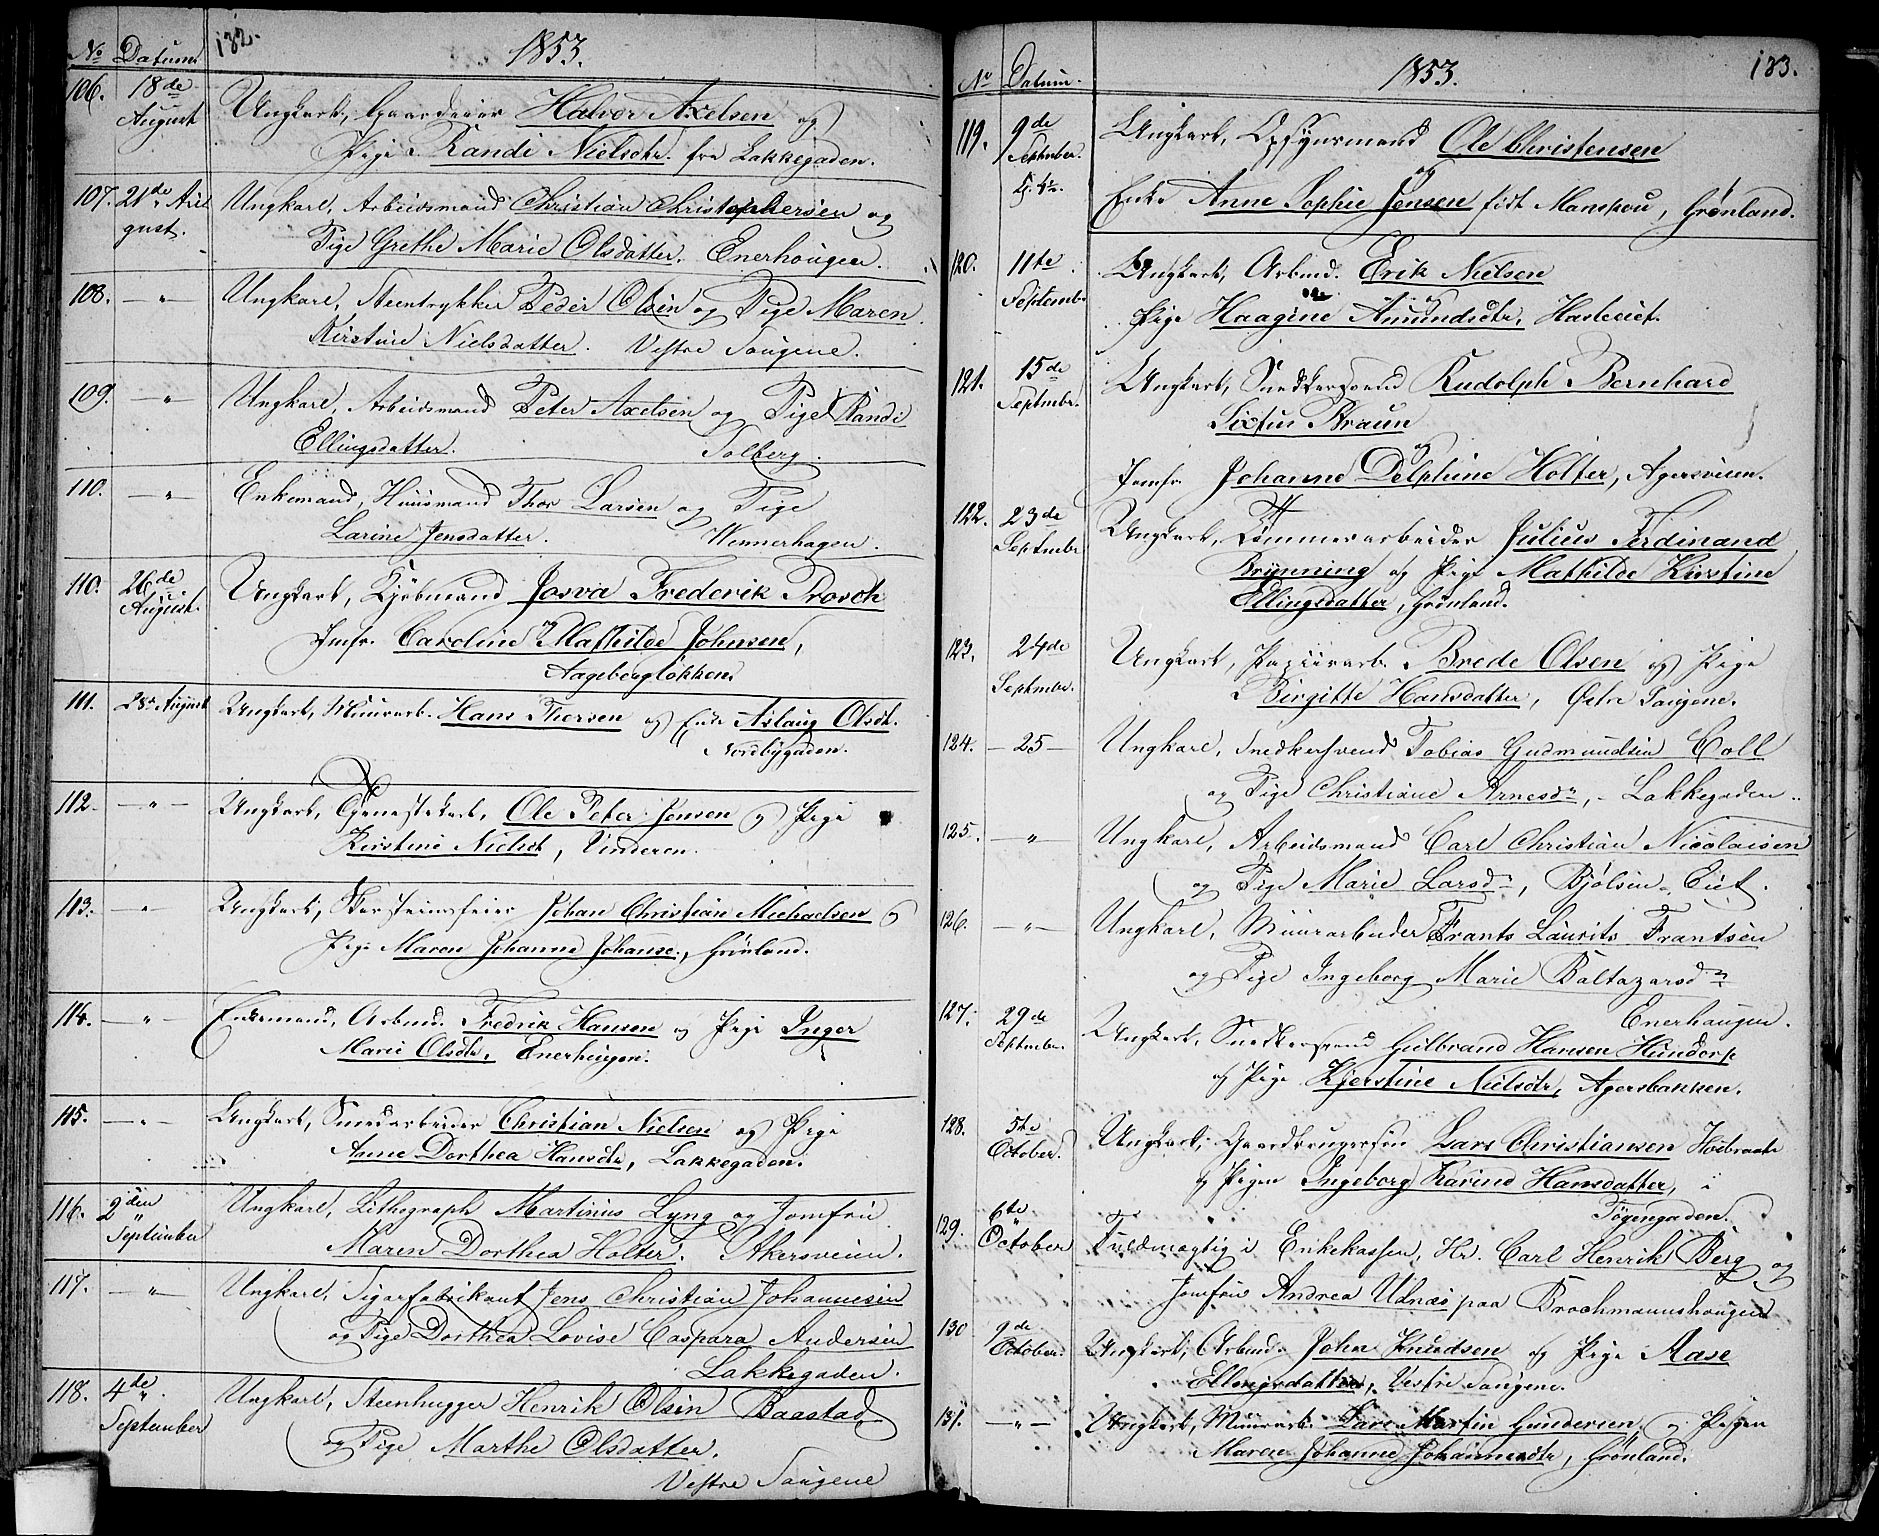 No Datum 132. 1853.
106. 18de August Ungkarl, Gaardeier Halvor Axelsen og
Pige Randi Nielsdtr. fra Lakkegaden.
107. 21de August. Ungkarl, Arbeidsmand Christian Christophersen og
Pige Grethe Marie Olsdatter. Enerhougen.
108. — " — Ungkarl, Steentrykker Peder Olsen og Pige Maren
Kirstine Nielsdatter. Vestre Tøigene.
109. — " — Ungkarl, Arbeidsmand Peter Axelsen og Pige Randi
Ellingsdatter. Tolberg.
110. — " — Enkemand, Huusmand Thor Larsen og Pige
Larine Jensdatter. Wennerhagen.
110. 26de August. Ungkarl, Kjøbmand Josva Frederik Prosch
og
Jomfr. Caroline Mathilde Johnsen,
Aagebergløkken.
111. 28de August Ungkarl, Muurarb. Hans Thersen og Enke Aslaug Olsdtr.
Nordbygaden.
112. — " — Ungkarl, Ole Peter Jensen og Pige
Kirstine Nielsdt, Vinderen.
113. " Ungkarl, Skorsteinsfeier Johan Christian Michaelsen og
Pige Maren Johanne Johanse., Grønland.
114. — " — Enkemand, Arbmd. Fredrik Hansen og Pige Inger
Marie Olsdtr, Enerhougen.
115. — " — Ungkarl, Smedarbeider Christian Nielsen og Pige
Anne Dorthea Hansdtr, Lakkegaden.
116. 2den September Ungkarl, Lithograph Martinus Lyng og Jomfru
Maren Dorthea Holter. Akersveien.
117. — " — Ungkarl, Sigarfabrikant Jens Christian Johannesen
og Pige Dorthea Lovise Caspara Andersen
Lakkegaden.
118. 4de September Ungkarl, Steenhugger Henrik Olsen Baastad
og Pige Marthe Olsdatter.
Vestre Tøigene
No Datum. 1853. 133.
119. 9de September Ungkarl, Opsynsmand Ole Christensen
og
Enke Anne Sophie Jensen født Manskou, Grønland.
120. 11te September Ungkarl, Arbmd. Erik Nielsen
og
Pige Haagine Amundsdtr, Hasleeiet.
121. 15de Septmbr. Ungkarl, Snedkersvend Rudolph Bernhard
Sixtus Braun
og
Jomfr. Johanne Delphine Holter, Agersveien.
122. 23de Septmbr Ungkarl, Tømmerarbeider Julius Ferdinand
Brynning og Pige Mathilde Kirstine
Ellingsdatter, Grønland.
123. 24de Septmbr. Ungkarl, Papiirarb. Brede Olsen og Pige
Birgitte Hansdatter, Østre Tøigene.
124. — 25 — Ungkarl, Snedkersvend Tobias Gudmundsen Coll
og Pige Christiane Arnesdr, – Lakkegaden.
125. — " — Ungkarl, Arbeidsmand Carl Christian Nicolaisen
og Pige Marie Larsdr, Bjølsen-Eiet.
126. — " — Ungkarl, Muurarbeider Frants Laurits Frantsen
og Pige Ingeborg Marie Baltazarsdr
Enerhaugen.
127. 29de September. Ungkarl, Snedkersvend Gulbrand Hansen Hundorp
og Pige Kjerstine Nielsdtr, Agersbakken.
128. 5te October. Ungkarl, Gaardbrugersøn Lars Christiansen Høibraate
og Pigen Ingeborg Karine Hansdatter, i
Tøgengaden.
129. 6te October Fuldmægtig i Enkekassen, Hr. Carl Henrik Berg og
Jomfru Andrea Udnæs paa Brochmannshougen
130 9de October. Ungkarl, Arbmd. John Knudsen og Pige Aase
Ellingsdatter, Vestre Tøigene.
131. — " — Ungkarl, Muurarb. Lars Martin Gundersen, og Pigen
Maren Johanne Johannesdtr, Grønland.